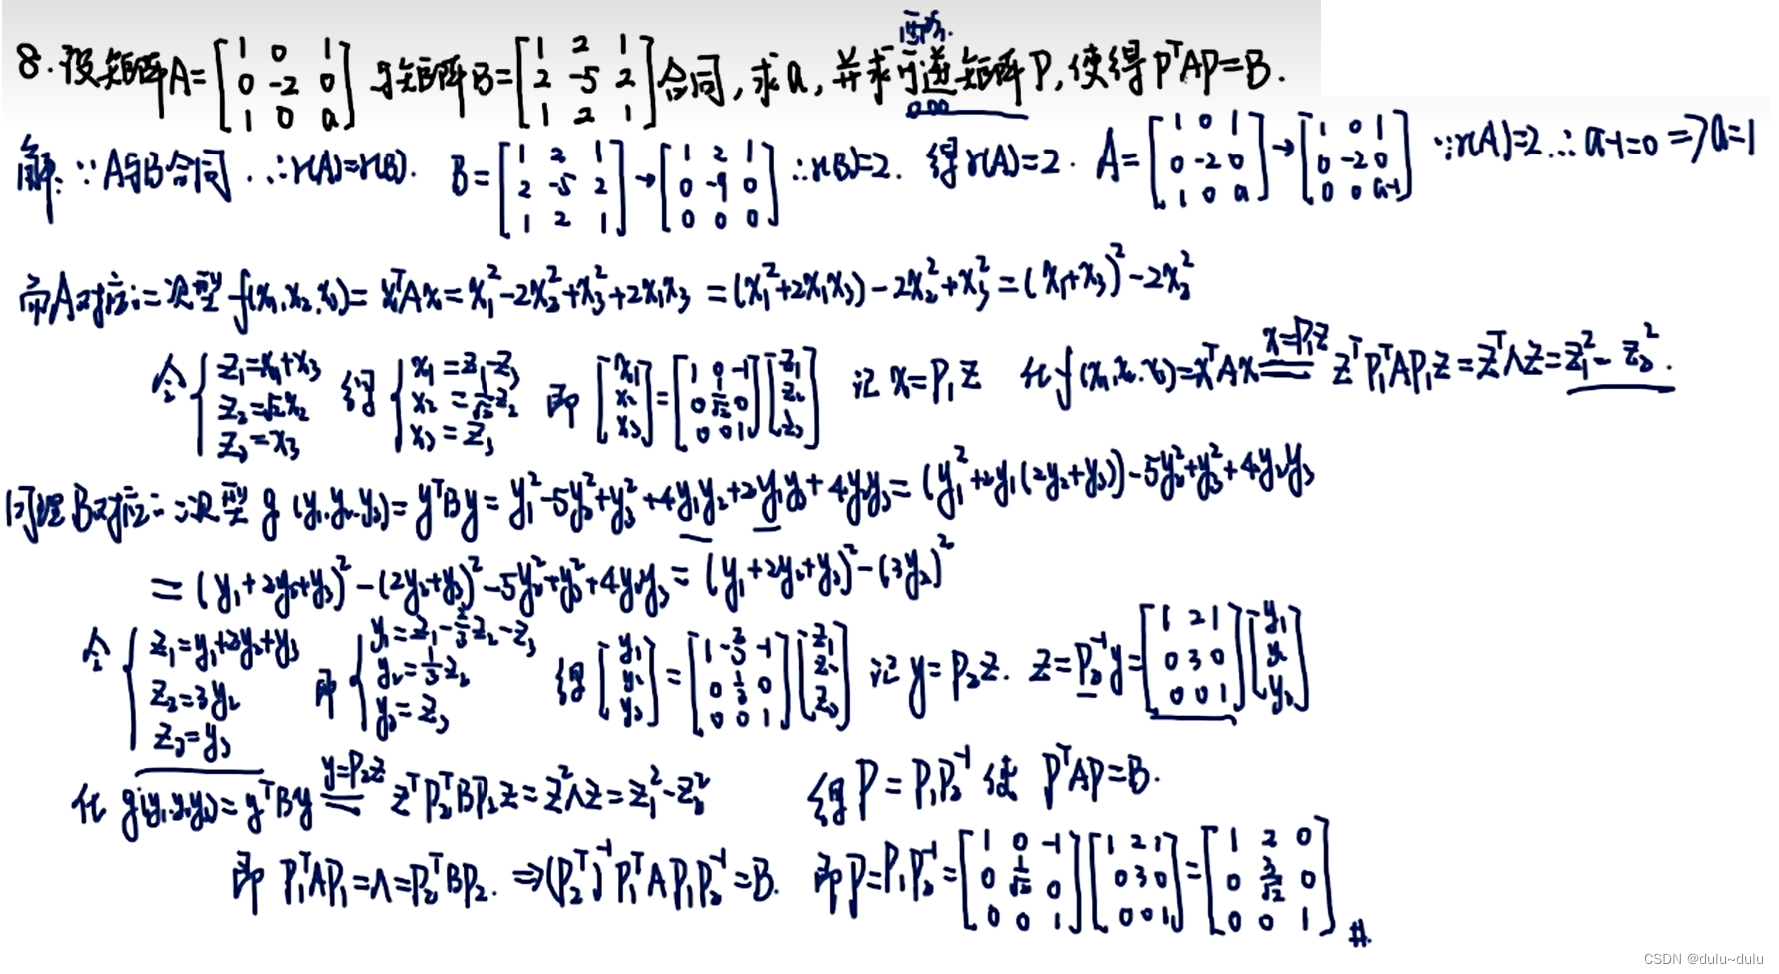 8.设矩阵A=[1 0 1; 0 -2 0; 1 0 a]与矩阵B=[1 2 1; 2 -5 2; 1 2 1]合同,求a,并求可逆矩阵P,使得PᵀAP=B.
解:∵A与B合同.∴r(A)=r(B). B=[1 2 1; 2 -5 2; 1 2 1]→[1 2 1; 0 -9 0; 0 0 0]∴r(B)=2. 得r(A)=2. A=[1 0 1; 0 -2 0; 1 0 a]→[1 0 1; 0 -2 0; 0 0 a-1] ∵r(A)=2.∴a-1=0⇒a=1
而A对应二次型 f(x₁,x₂,x₃)=xᵀAx=x₁²-2x₂²+x₃²+2x₁x₃=(x₁²+2x₁x₃)-2x₂²+x₃²=(x₁+x₃)²-2x₂²
令{z₁=x₁+x₃; z₂=√2x₂; z₃=x₃ 得{x₁=z₁-z₃; x₂=1/√2 z₂; x₃=z₃ 即[x₁; x₂; x₃]=[1 0 -1; 0 1/√2 0; 0 0 1][z₁; z₂; z₃] 记x=P₁z 化f(x₁,x₂,x₃)=xᵀAx =(x=P₁z)= zᵀP₁ᵀAP₁z=zᵀΛz=z₁²-z₂².
同理B对应二次型 g(y₁,y₂,y₃)=yᵀBy=y₁²-5y₂²+y₃²+4y₁y₂+2y₁y₃+4y₂y₃=(y₁²+2y₁(2y₂+y₃))-5y₂²+y₃²+4y₂y₃
=(y₁+2y₂+y₃)²-(2y₂+y₃)²-5y₂²+y₃²+4y₂y₃=(y₁+2y₂+y₃)²-(3y₂)²
令{z₁=y₁+2y₂+y₃; z₂=3y₂; z₃=y₃ 即{y₁=z₁-2/3z₂-z₃; y₂=1/3z₂; y₃=z₃ 得[y₁; y₂; y₃]=[1 -2/3 -1; 0 1/3 0; 0 0 1][z₁; z₂; z₃] 记y=P₂z. z=P₂⁻¹y=[1 2 1; 0 3 0; 0 0 1][y₁; y₂; y₃]
化 g(y₁,y₂,y₃)=yᵀBy =(y=P₂z)= zᵀP₂ᵀBP₂z=z²Λz=z₁²-z₂² 得P=P₁P₂⁻¹使 PᵀAP=B.
即 P₁ᵀAP₁=Λ=P₂ᵀBP₂.⇒(P₂ᵀ)⁻¹P₁ᵀAP₁P₂⁻¹=B. 即P=P₁P₂⁻¹=[1 0 -1; 0 1/√2 0; 0 0 1][1 2 1; 0 3 0; 0 0 1]=[1 2 0; 0 3/√2 0; 0 0 1] #.
CSDN @dulu~dulu